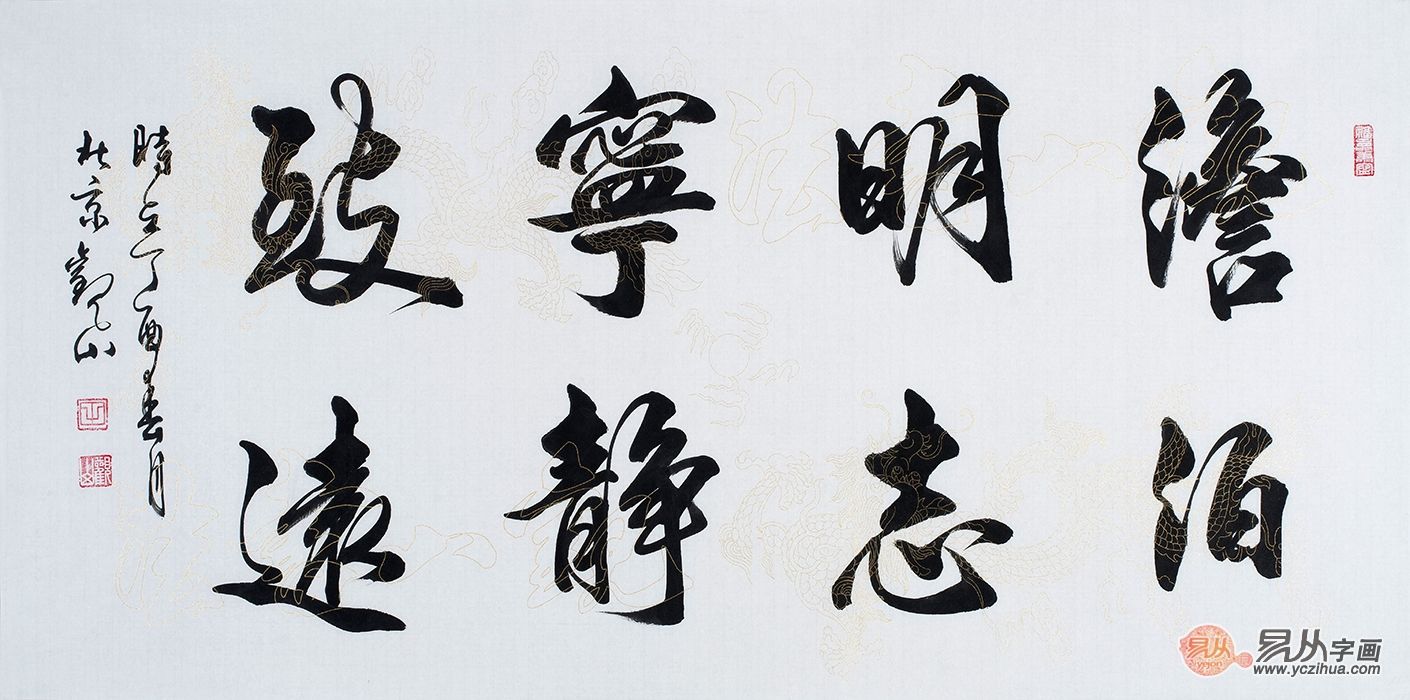 澹泊
明志
寧静
致遠
時在丁酉春月
北京觀山
易从
易从字画
www.yczihua.com